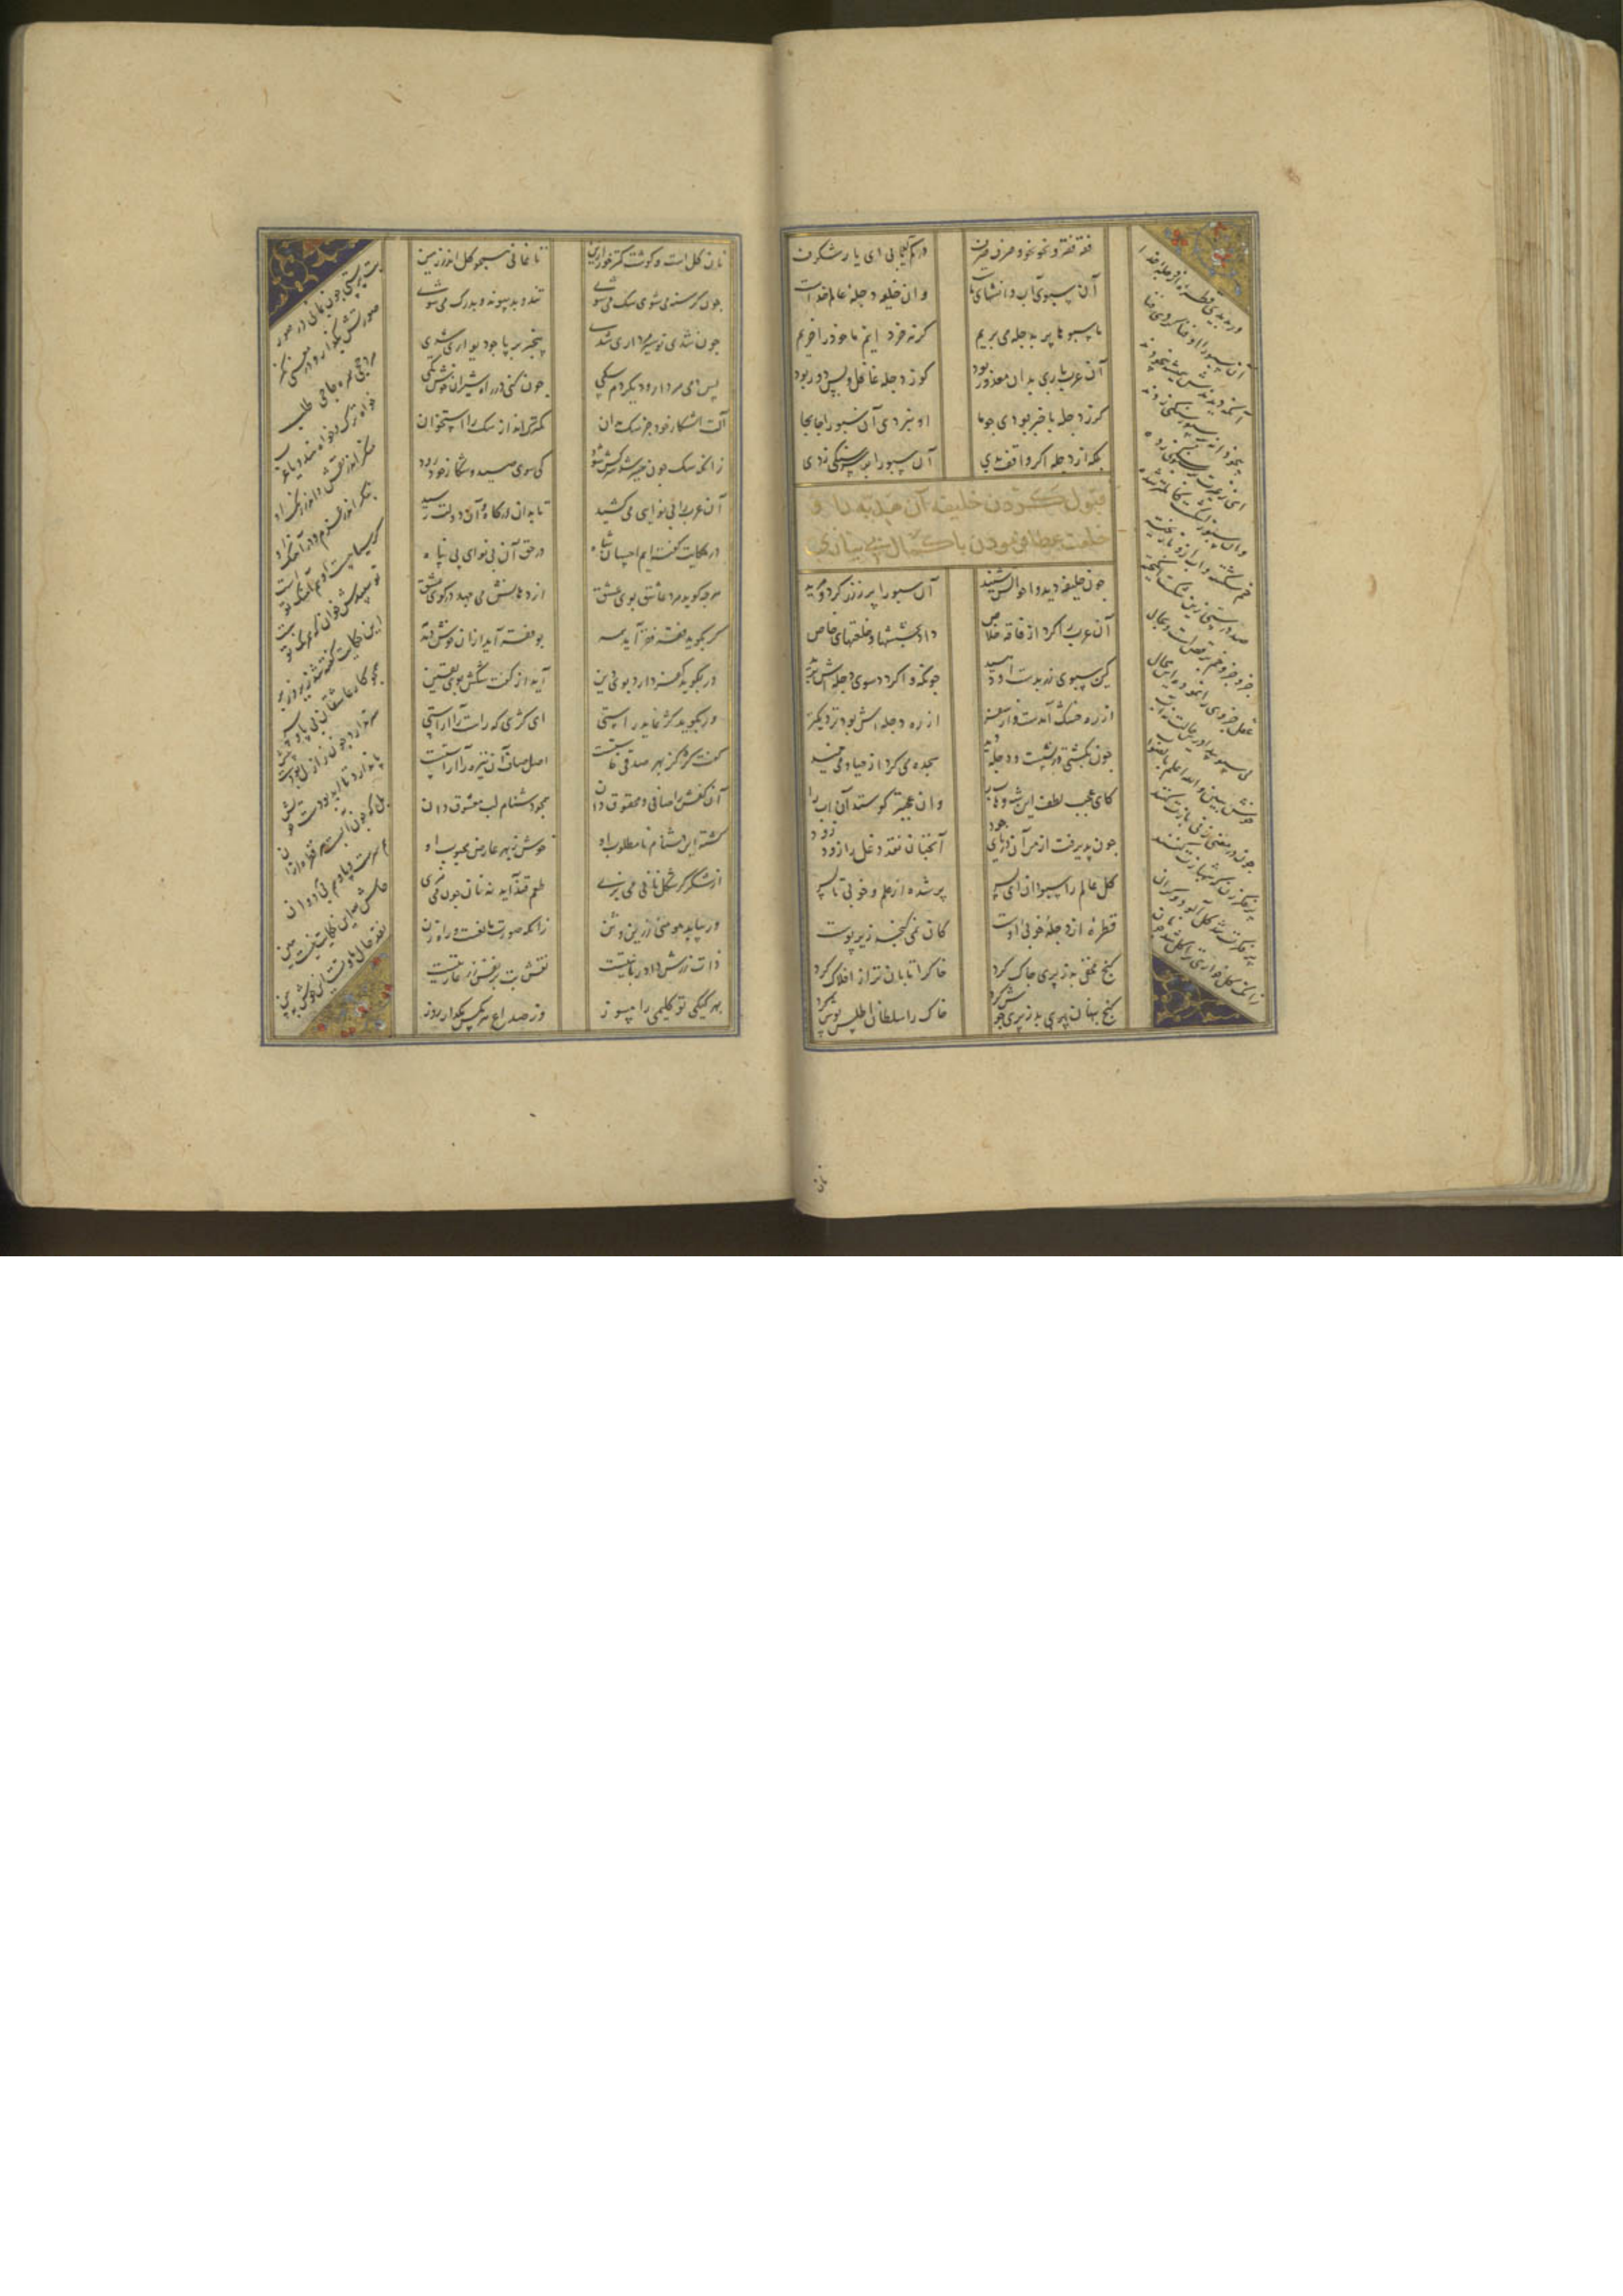 فقه فقه و نحو نحو و صرف صرف در کم آیی یابی ای یار شکرف
آن سبوی آب دانشهای ما وان خلیفه دجله علم خداست
ما سبوها پر بدجله می بریم کرنه خر دانیم ما خود را خریم
آن عرب باری بدان معذور بود کو ز دجله غافل و بس دور بود
کر ز دجله با خبر بودی چو ما او نبردی آن سبو را جا بجا
بلکه از دجله اکر واقف بدی آن سبو را بر سر سنکی زدی
قبول کردن خلیفه آن هدیه را و
خلعت عطا فرمودن با کمال بی نیازی
جون خلیفه دید و احوالش شنید آن سبو را پر ز زر کرد و مزید
آن عرب را کرد از فاقه خلاص داد بخششها و خلعتهای خاص
کین سبوی زر بدست او دهید جونکه واکردد سوی دجله اش برید
از ره خشک آمدست و از سفر از ره دجله اش بود نزدیکتر
جون بکشتی در نشست و دجله دید سجده می کرد از حیا و می خمید
کای عجب لطف این شه وهاب را وان عجبتر کو ستد آن آب را
جون پذیرفت از من آن دریای جود آنجنان نقد دغل را زود زود
کل عالم را سبو دان ای پسر پر شده از علم و خوبی تا بسر
قطره از دجله خوبی اوست کان نمی کنجد ز پری زیر پوست
کنج مخفی بد ز پری جاک کرد خاک را تابان تر از افلاک کرد
کنج مخفی بد ز پری جوش کرد خاک را سلطان اطلس پوش کرد
ور بدیدی قطره از دجله خدا
آن سبو را او فنا کردی فنا
آنکه دیدندش همیشه بیخودند
بیخودانه بر سبو سنکی زدند
ای ز غیرت بر سبو سنکی زده
وان سبو ز اشکست کاملتر شده
خم شکسته آب ازو ناریخته
صد درستی زین شکست انکیخته
جزو جزو خم برقصست و بحال
عقل جزوی را نموده این محال
نی سبو پیدا درین حالت نه آب
خوش ببین والله اعلم بالصواب
جون در معنی زنی بازت کنند
پر فکرت زن که شهبازت کنند
پر فکرت شد کل آلود و کران
زانکه کل خواری ترا کل شد جو نان
نان
نان کلست و کوشت کمتر خور ازین تا نمانی همجو کل اندر زمین
جون کرسنه می شوی سک می شوی تند و بد پیوند و بدرک می شوی
جون شدی تو سیر مرداری شدی بیخبر بی پا جو دیواری شدی
پس دمی مردار و دیکر دم سکی جون کنی در راه شیران خوش تکی
آلت اشکار خود جز سک مدان کمترک انداز سک را استخوان
زانکه سک جون سیر شد سرکش شود کی سوی صید و شکار خود رود
آن عرب را بی نوایی می کشید تا بدان درکاه و آن دولت رسید
در حکایت کفته ایم احسان شاه در حق آن بی نوای بی پناه
هرجه کوید مرد عاشق بوی عشق از دهانش می جهد در کوی عشق
کر بکوید فقه فقر آید همه بوی فقر آید از آن خوش دمدمه
ور بکوید کفر دارد بوی دین آید از کفت شکش بوی یقین
ور بکوید کژ نماید راستی ای کژی که راست را آراستی
آن کفش را صافی و محقوق دان همجو دشنام لب معشوق دان
کشته این دشنام نامطلوب او خوش ز بهر عارض محبوب او
از شکر کر شکل نانی می پزی طعم قند آید نه نان جون می مزی
ور بیابد مومنی زرین وثن
ذات زرش داد ربانیتست نقش بت بر نقد زر عاریتست
بهر کیکی تو کلیمی را مسوز وز صداع هر مکس مکذار روز
بت پرستی جون بمانی در صور
صورتش بکذار و در معنی نکر
مرد حجی همره حاجی طلب
خواه هندو خواه ترک و یا عرب
منکر اندر نقش و اندر رنک او
بنکر اندر عزم و در آهنک او
کر سیاهست او هم آهنک توست
تو سپیدش خوان که همرنک توست
این حکایت کفته شد زیر و زبر
همجو کار عاشقان بی پا و سر
سر ندارد جون ز ازل بودست پیش
پا ندارد تا ابد بودست خویش
بلکه جون آبست هر قطره از آن
هم سرست و پا و هم بی هر دوان
حاش لله این حکایت نیست هین
نقد حال ما و تست این خوش ببین